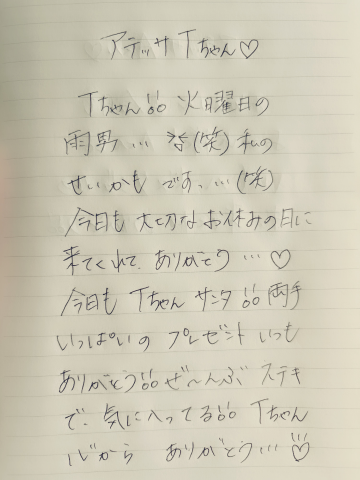 アデッサ Tちゃん♡
Tちゃん!! 火曜日の
雨男… (笑) 私の
せいかも です、…(笑)
今日も 大切な お休みの日に
来てくれて、ありがとう…♡
今日も Tちゃん サンタ!! 両手
いっぱいの プレゼント いつも
ありがとう!! ぜ〜んぶ ステキ
で、気に入ってる!! Tちゃん
心から ありがとう…♡